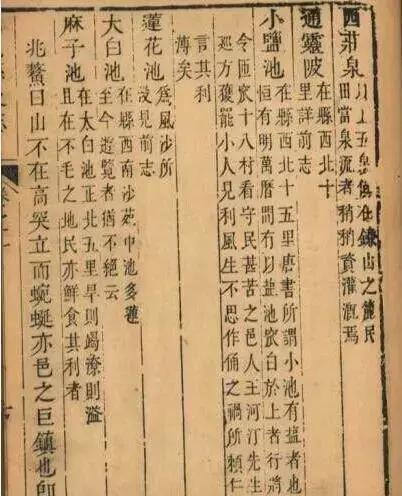 西莊泉
上五泉俱在鎌山之麓民
田當泉流者稍稍資灌溉焉
通靈陂
在縣西北十
里詳前志
小鹽池
在縣西北十五里唐書所謂小池有鹽者也
恒有明萬曆間有以盐池宻白於上者行將
令匝宻十八村看守民甚苦之邑人王河汀先生
廵方獲罷小人見利風生不思作俑之禍所頼仁
言其利
溥矣
蓮花池
爲風沙所
没見前志
太白池
在縣西南沙苑中池多蓮
至今遊覽者猶不絶云
麻子池
在太白池正北五里旱則竭潦則溢
且在不毛之地民亦鮮食其利者
兆鰲曰山不在高突立而蜿蜒亦邑之巨鎮也卽